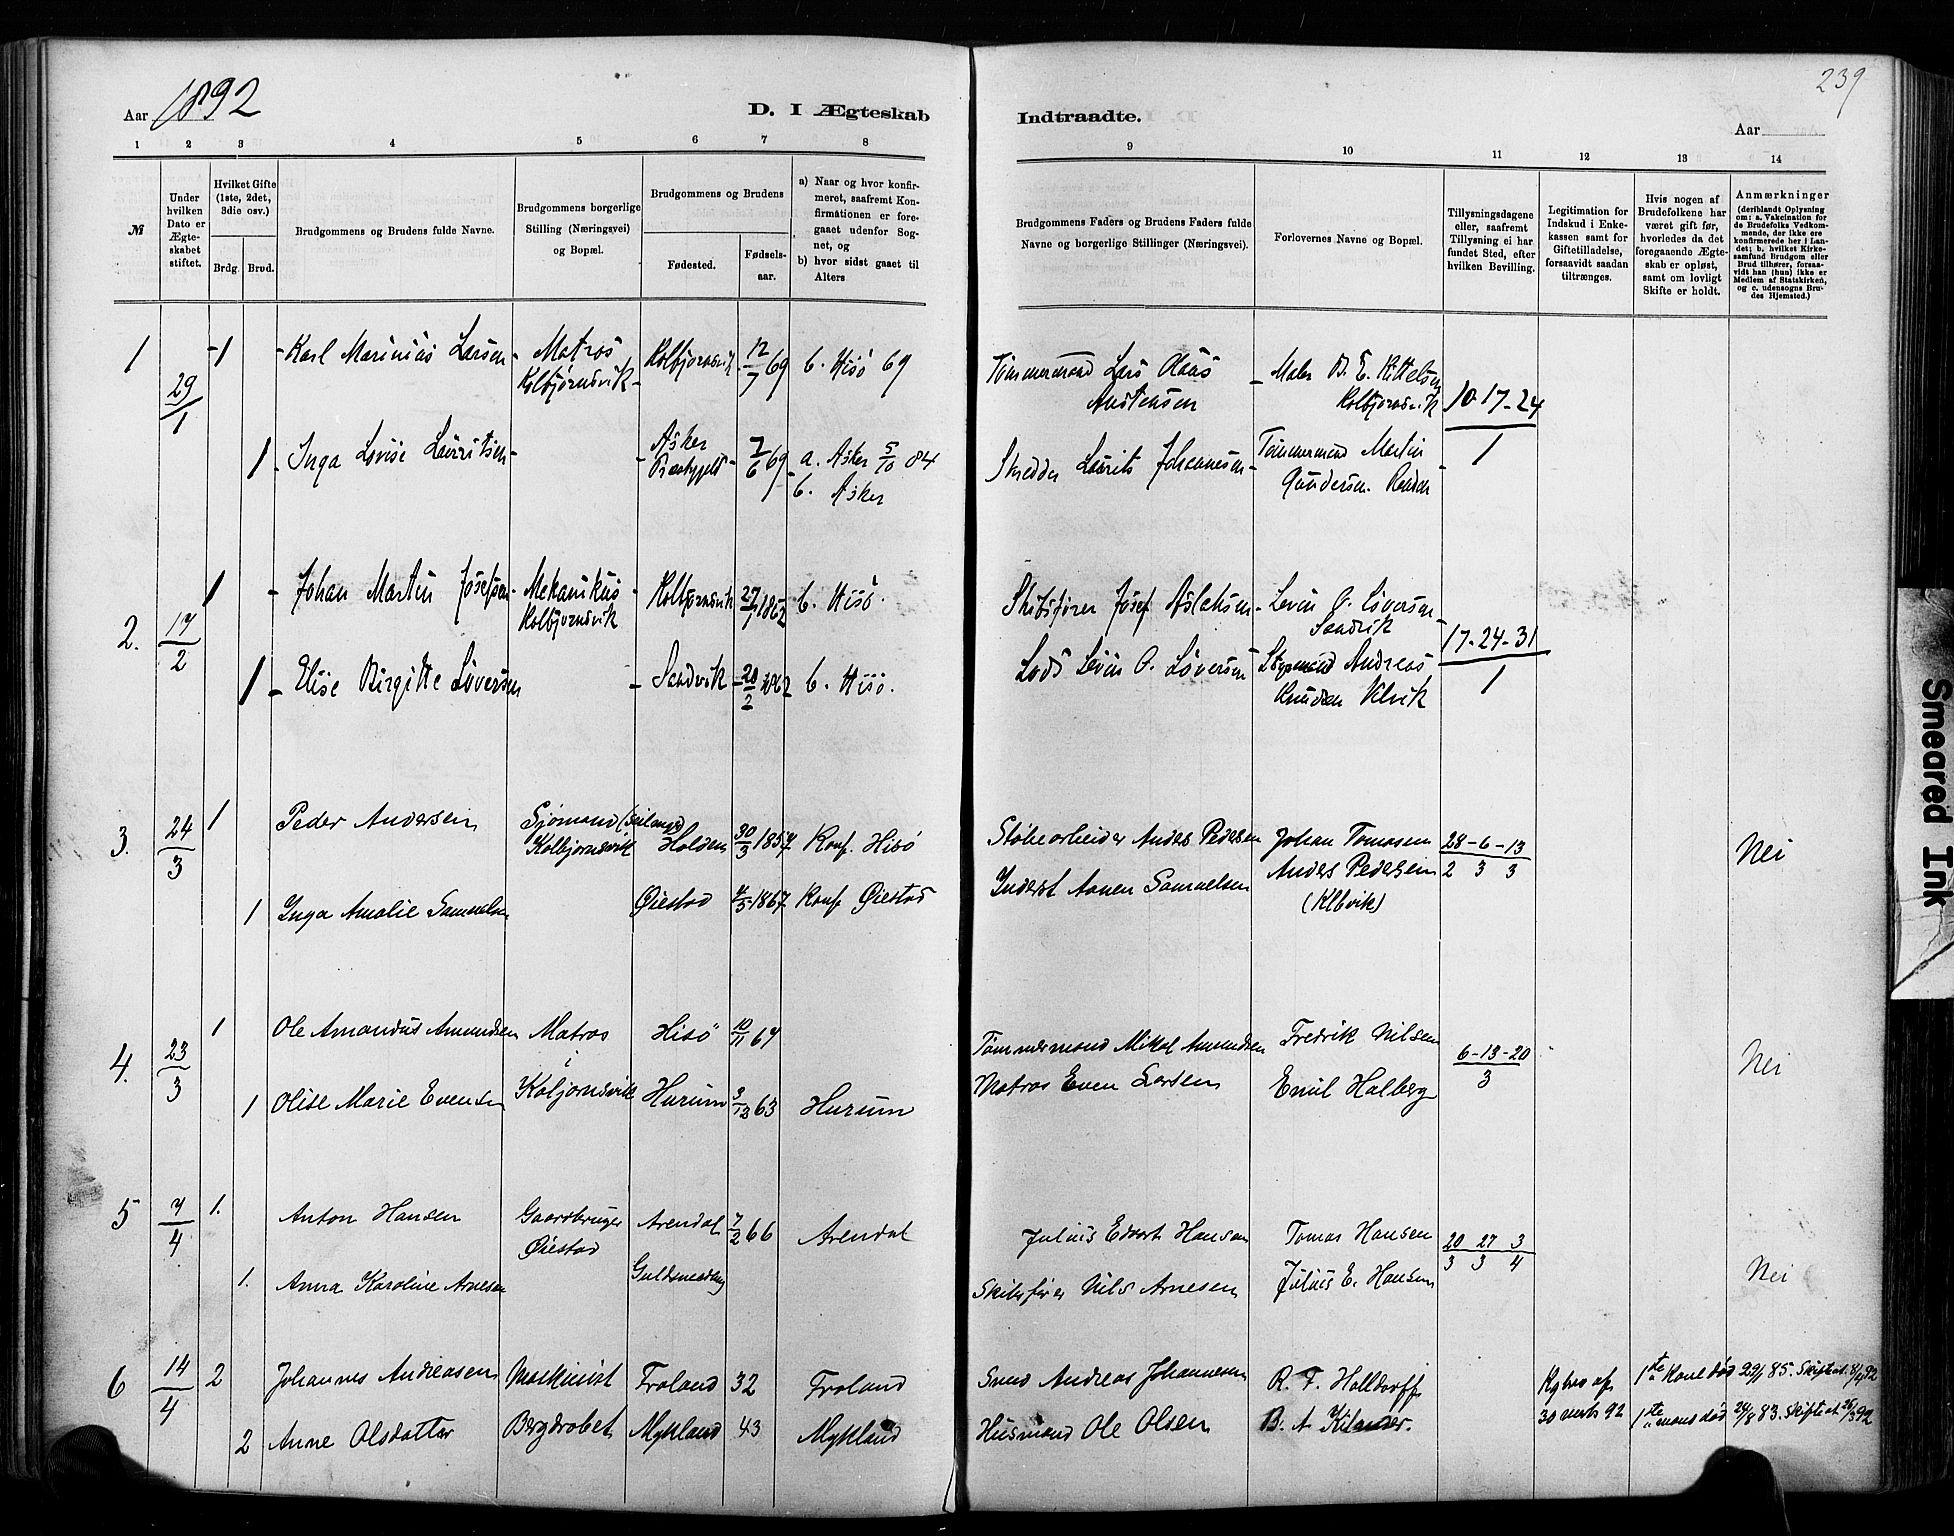 239
Aar 1892
D. I Ægteskab
Indtraadte.
Aar
1 2 3 4 5 6 7 8
9 10 11 12 13 14
№
Under hvilken Dato er Ægteskabet stiftet.
Hvilket Gifte (1ste, 2det, 3die osv.)
Brdg. Brud.
Brudgommens og Brudens fulde Navne.
Brudgommens borgerlige Stilling (Næringsvei) og Bopæl.
Brudgommens og Brudens
Fødested.
Fødselsaar.
a) Naar og hvor konfirmeret, saafremt Konfirmationen er foregaaet udenfor Sognet, og
b) hvor sidst gaaet til Alters
Brudgommens Faders og Brudens Faders fulde Navne og borgerlige Stillinger (Næringsvei).
Forlovernes Navne og Bopæl.
Tillysningsdagene eller, saafremt Tillysning ei har fundet Sted, efter hvilken Bevilling.
Legitimation for Indskud i Enkekassen samt for Giftetilladelse, forsaavidt saadan tiltrænges.
Hvis nogen af Brudefolkene har været gift før, hvorledes da det foregaaende Ægteskab er opløst, samt om lovligt Skifte er holdt.
Anmærkninger (deriblandt Oplysning om: a. Vakcination for de Brudefolks Vedkommende, der ikke ere konfirmerede her i Landet; b. hvilket Kirkesamfund Brudgom eller Brud tilhører, forsaavidt han (hun) ikke er Medlem af Statskirken, og c. udensogns Brudes Hjemsted.)
1 29/1 1 Karl Marinius Larsen Matros Kolbjørnsvik Kolbjornsvik 12/7 69 b. Hisö 69 Tømmermand Lars Claus Austensen Maler B. E. Kittelsen Kolbjornsvik 10-17-24/1
1 Inga Lovise Lauritsen Asker Præstegjeld 7/6 69 a. Asker 5/10 84 b. Asker Skrædder Laurits Johannesen Tømmermand Martin Gundersen
2. 17/2 1 Johan Martin Josefsen Mekanikus Kolbjornsvik Kolbjornsvik 27/7 1862 b. Hisö. Skibsfører Josef Aslaksen Levin O. Siversen Sandvik 17-24-31/1
1 Elise Birgitte Siversen Sandvik 20/2 1862 b. Hisö. Lods Levin O. Siversen Styrmand Andreas Knudsen
3. 24/3 1 Peder Andersen Sjömand Kolbjornsvik Holden 30/3 1857 Konf. Hisö Støbearbeider Anders Pedersen Johan Tomasen 28-6-13
1 Inga Amalie Samuelsen Øiestad 1867 Konf Øiestad Inderst Aanen Samuelsen Anders Pedersen 2 3 3
(Klbvik) Nei
4. 23/3 1 Ole Amandus Amundsen Matros i Kolbjornsvik Hisö 10/11 67 Tømmermand Mikal Amundsen Fredrik Nilsen 6-13-20/3 Nei
1 Olise Marie Evensen Hurum 9/12 63 Hurum Matros Even Larsen Emil Halberg
5 7/4 1. Anton Hansen Gaardbruger Øiestad Arendal 7/2 66 Arendal Julius Edvart Hansen Tomas Hansen 20 27 3
1. Anna Karoline Arnesen Guldsmedeng Skibsfører Nils Arnesen Julius E. Hansen 3 3 4 Nei
6 14/4 2 Johannes Andreasen Maskinist Froland 32 Froland Svend Andreas Johannesen R. F. Halldorff 1ste Kone död 85. Skifteat. 92
2 Anne Olsdatter Mykland 43 Mykland Husmand Ole Olsen B. A. Kilander. 30 marts 92 1ste mand död 83. Skifteat. 92
Smeared Ink